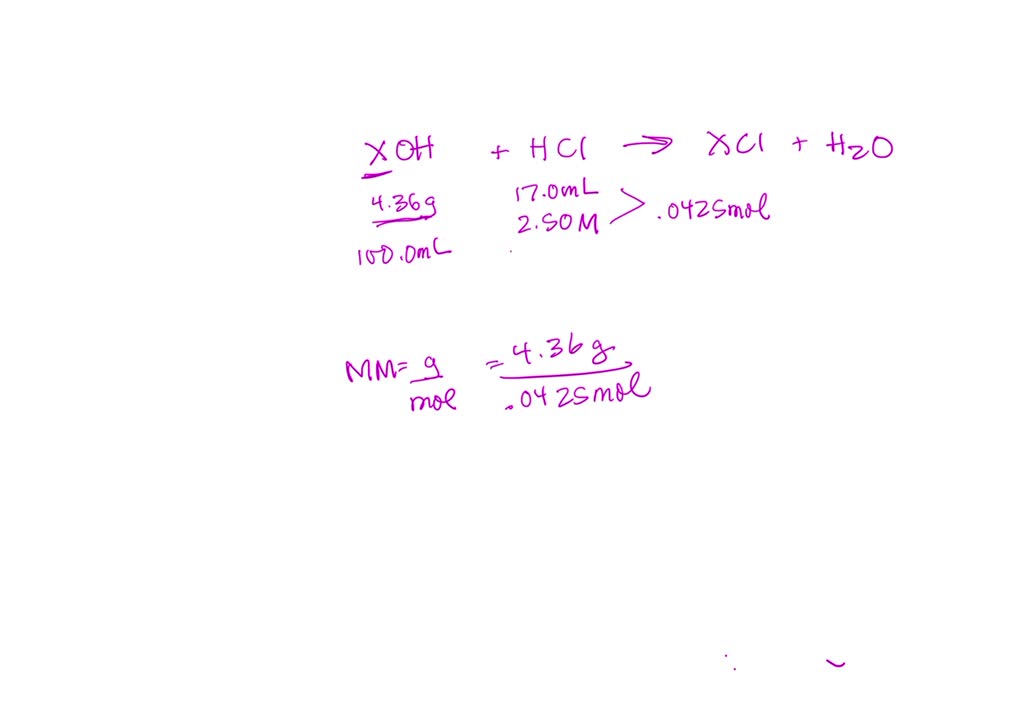 XOH + HCl → XCl + H2O
4.36g 17.0mL
2.50M > .0425mol
100.0mL
MM= g/mol = 4.36g/.0425mol